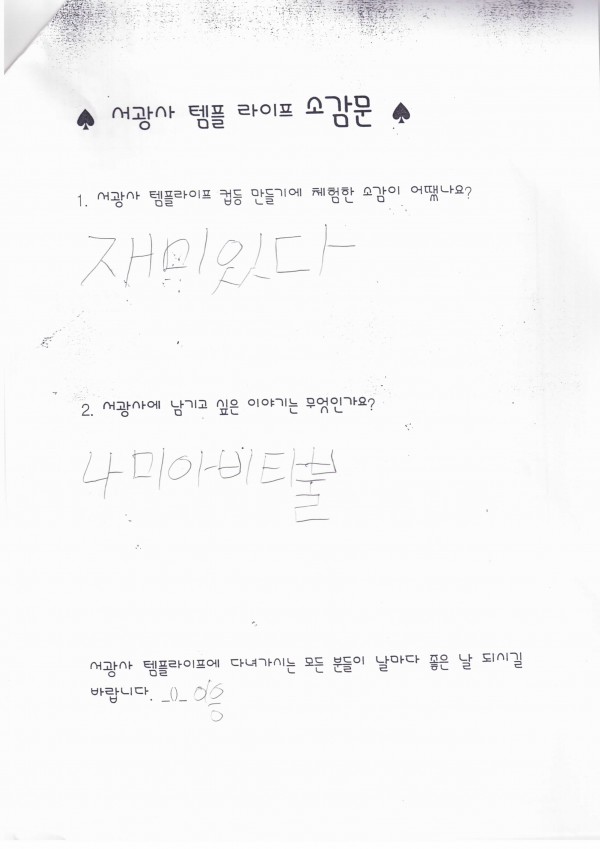 ♠ 서광사 템플 라이프 소감문 ♠
1. 서광사 템플라이프 컵등 만들기에 체험한 소감이 어땠나요?
재미있다
2. 서광사에 남기고 싶은 이야기는 무엇인가요?
나미아비타불
서광사 템플라이프에 다녀가시는 모든 분들이 날마다 좋은 날 되시길
바랍니다. _()_